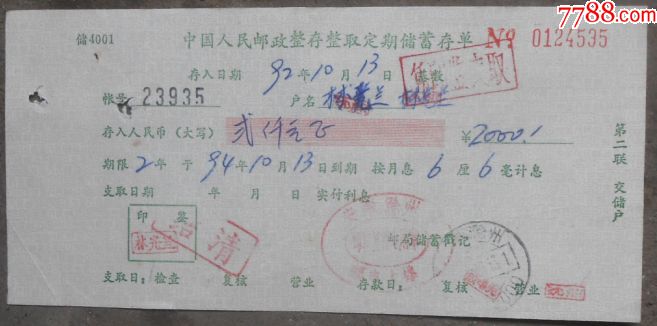 7788.com
储4001
中国人民邮政整存整取定期储蓄存单 № 0124535
存入日期 92年10月13日
帐号 23935 户名
存入人民币(大写) 贰仟元正 ¥2000.-
期限2年于94年10月13日到期 按月息6厘6毫计息
支取日期 年 月 日 实付利息
第二联 交储户
印鉴
清
邮局储蓄戳记
支取日: 检查 复核 营业 存款日: 复核 营业